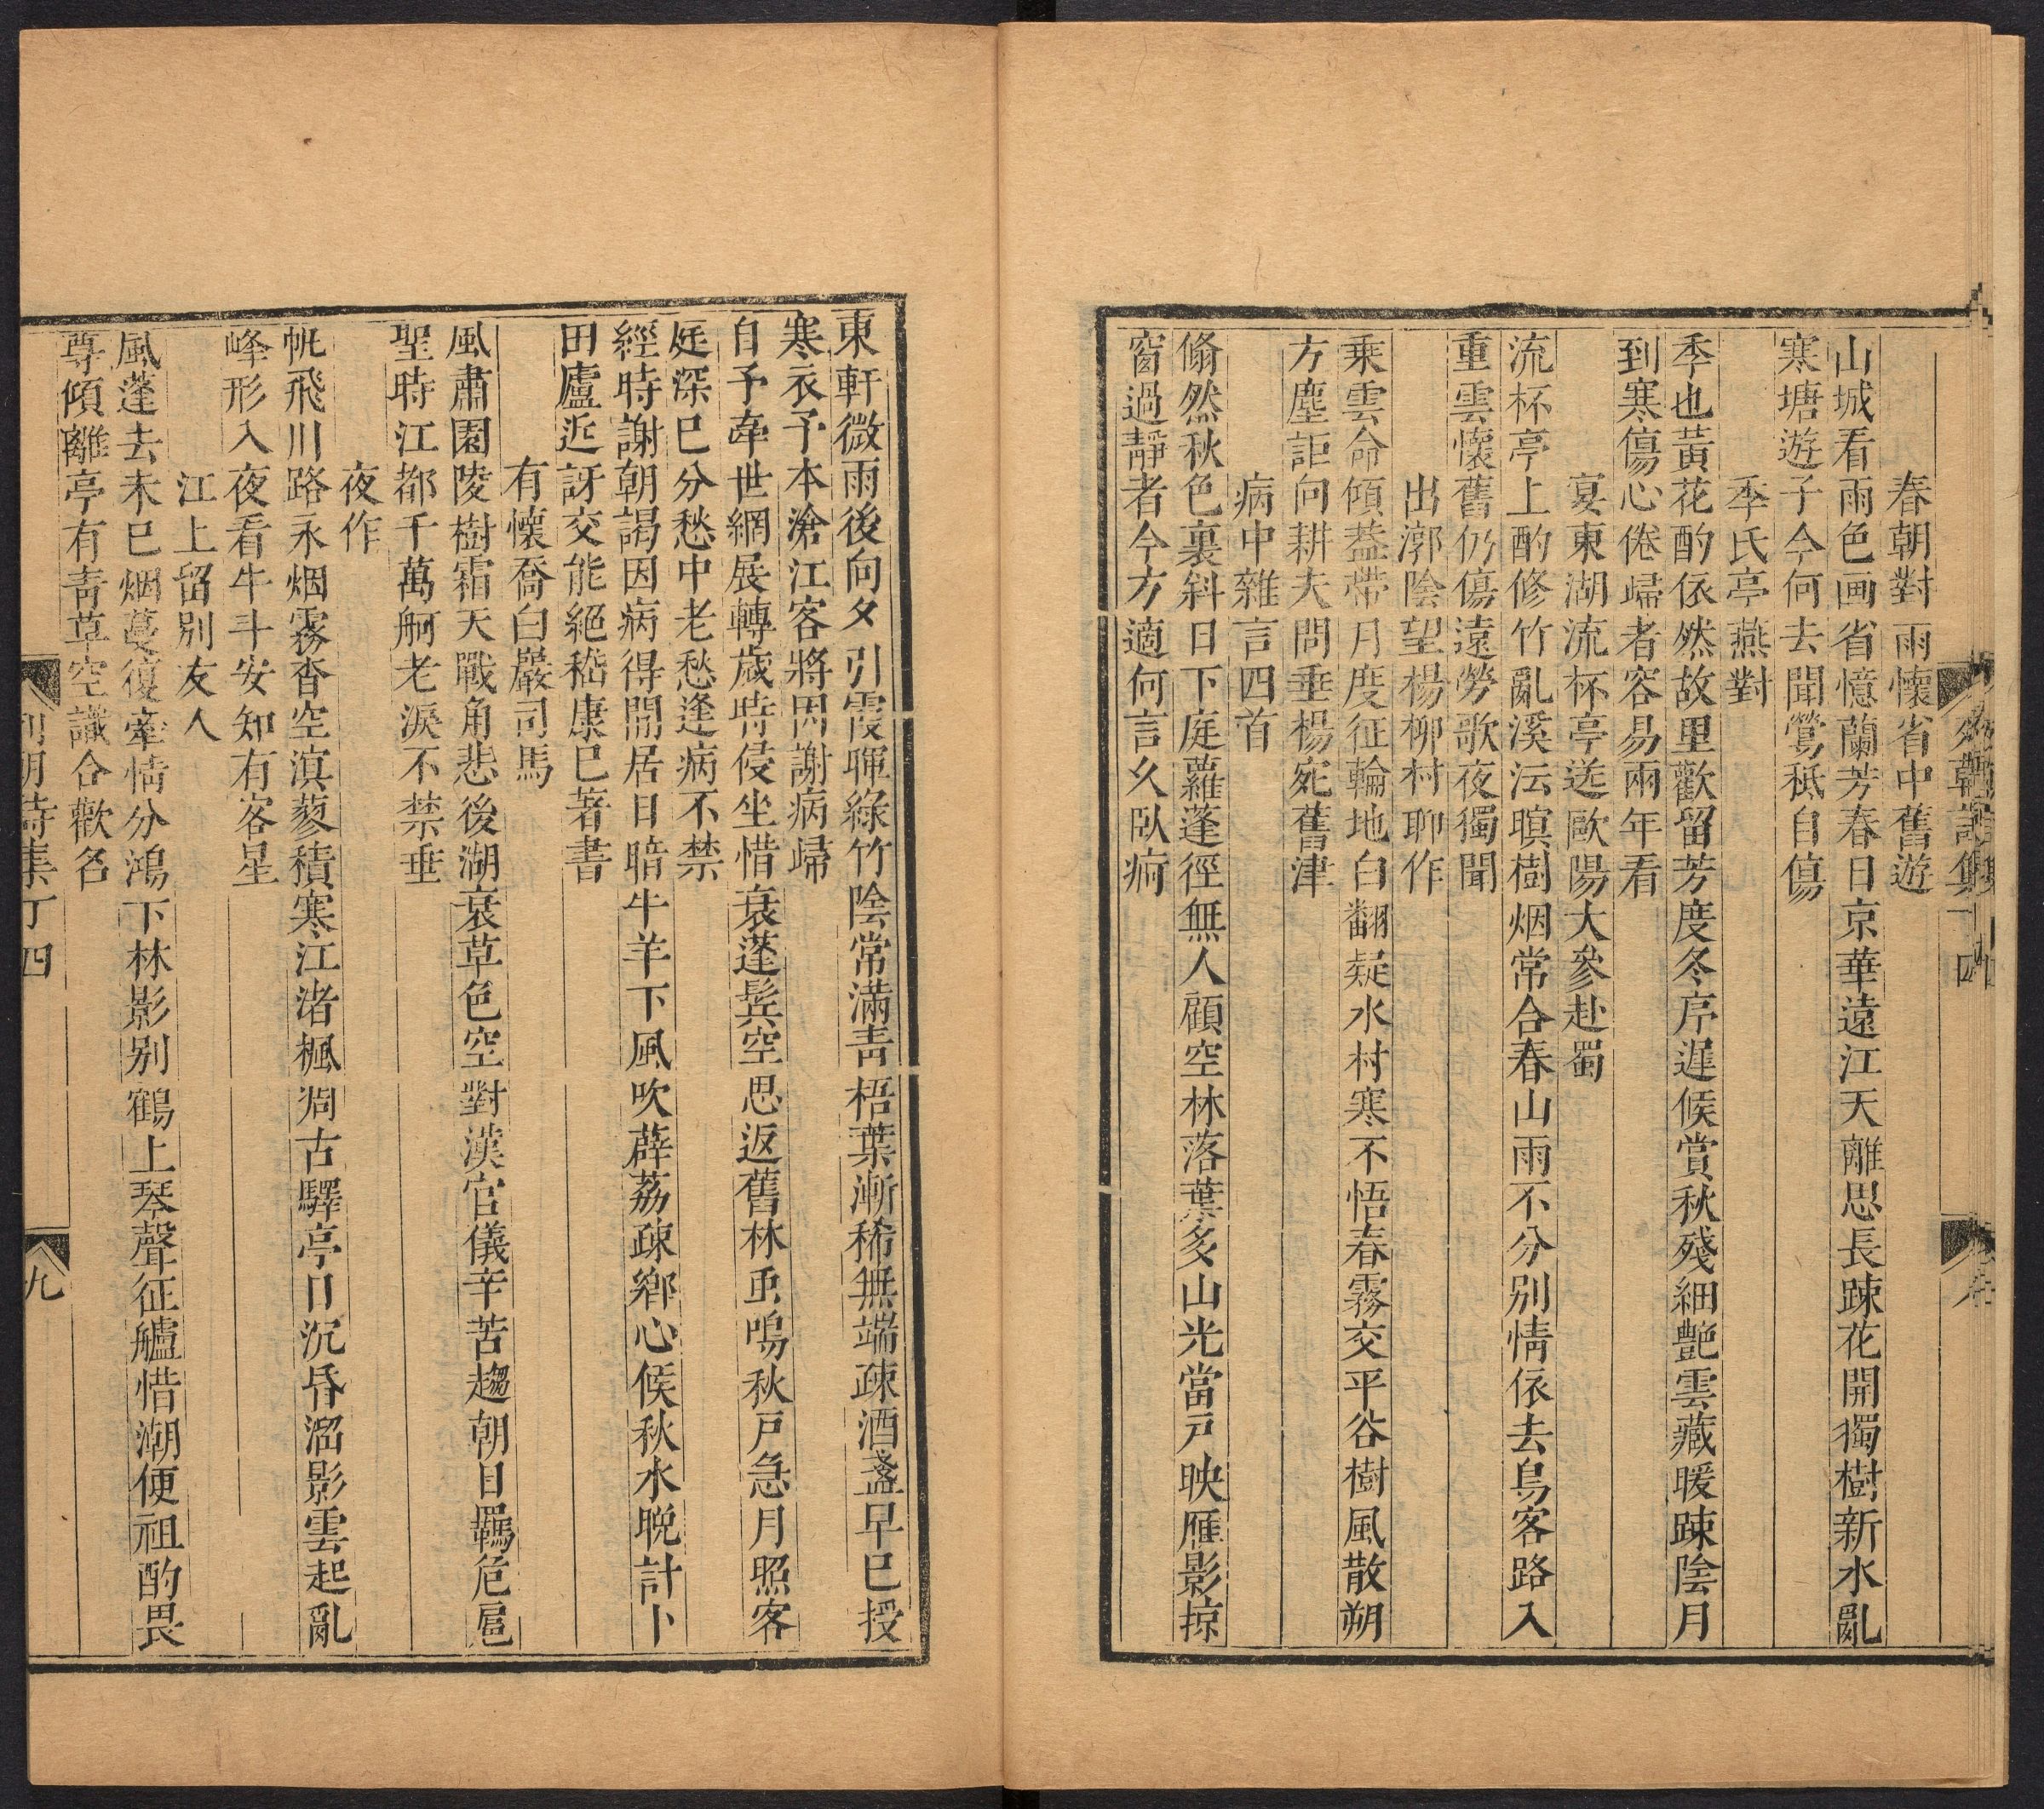 春朝對雨懷省中舊遊
山城看雨色画省憶蘭芳春日京華遠江天離思長踈花開獨樹新水亂
寒塘遊子今何去聞鶯秪自傷
季氏亭燕對
季也黃花酌依然故里歡留芳度冬序遲候賞秋殘細艶雲藏暖踈陰月
到寒傷心倦歸者容易兩年看
宴東湖流杯亭送歐陽大參赴蜀
流杯亭上酌修竹亂溪沄暝樹烟常合春山雨不分別情依去鳥客路入
重雲懷舊仍傷遠勞歌夜獨聞
出漷陰望楊柳村聊作
乘雲命傾葢帶月度征輪地白翻疑水村寒不悟春霧交平谷樹風散朔
方塵詎向耕夫問垂楊宛舊津
病中雜言四首
翛然秋色裏斜日下庭蘿蓬徑無人顧空林落葉多山光當戸映雁影掠
窗過靜者今方適何言久臥痾
東軒微雨後向夕引霞暉綠竹陰常滿青梧葉漸稀無端疎酒盞早巳授
寒衣予本滄江客將因謝病歸
自予牽世網展轉歲時侵坐惜衰蓬髩空思返舊林虫鳴秋戸急月照客
庭深巳分愁中老愁逢病不禁
經時謝朝謁因病得閒居日暗牛羊下風吹薜荔疎鄉心候秋水晩計卜
田廬近訝交能絕嵇康巳著書
有懷喬白巖司馬
風肅園陵樹霜天戰角悲後湖衰草色空對漢官儀辛苦趨朝日羈危扈
聖時江都千萬舸老淚不禁垂
夜作
帆飛川路永烟霧杳空溟蓼積寒江渚楓凋古驛亭日沉昏溜影雲起亂
峰形入夜看牛斗安知有客星
江上留別友人
風蓬去未巳烟蔓復牽情分鴻下林影别鶴上琴聲征艫惜潮便祖酌畏
尊傾離亭有青草空識合歡名
列朝詩集丁四
九